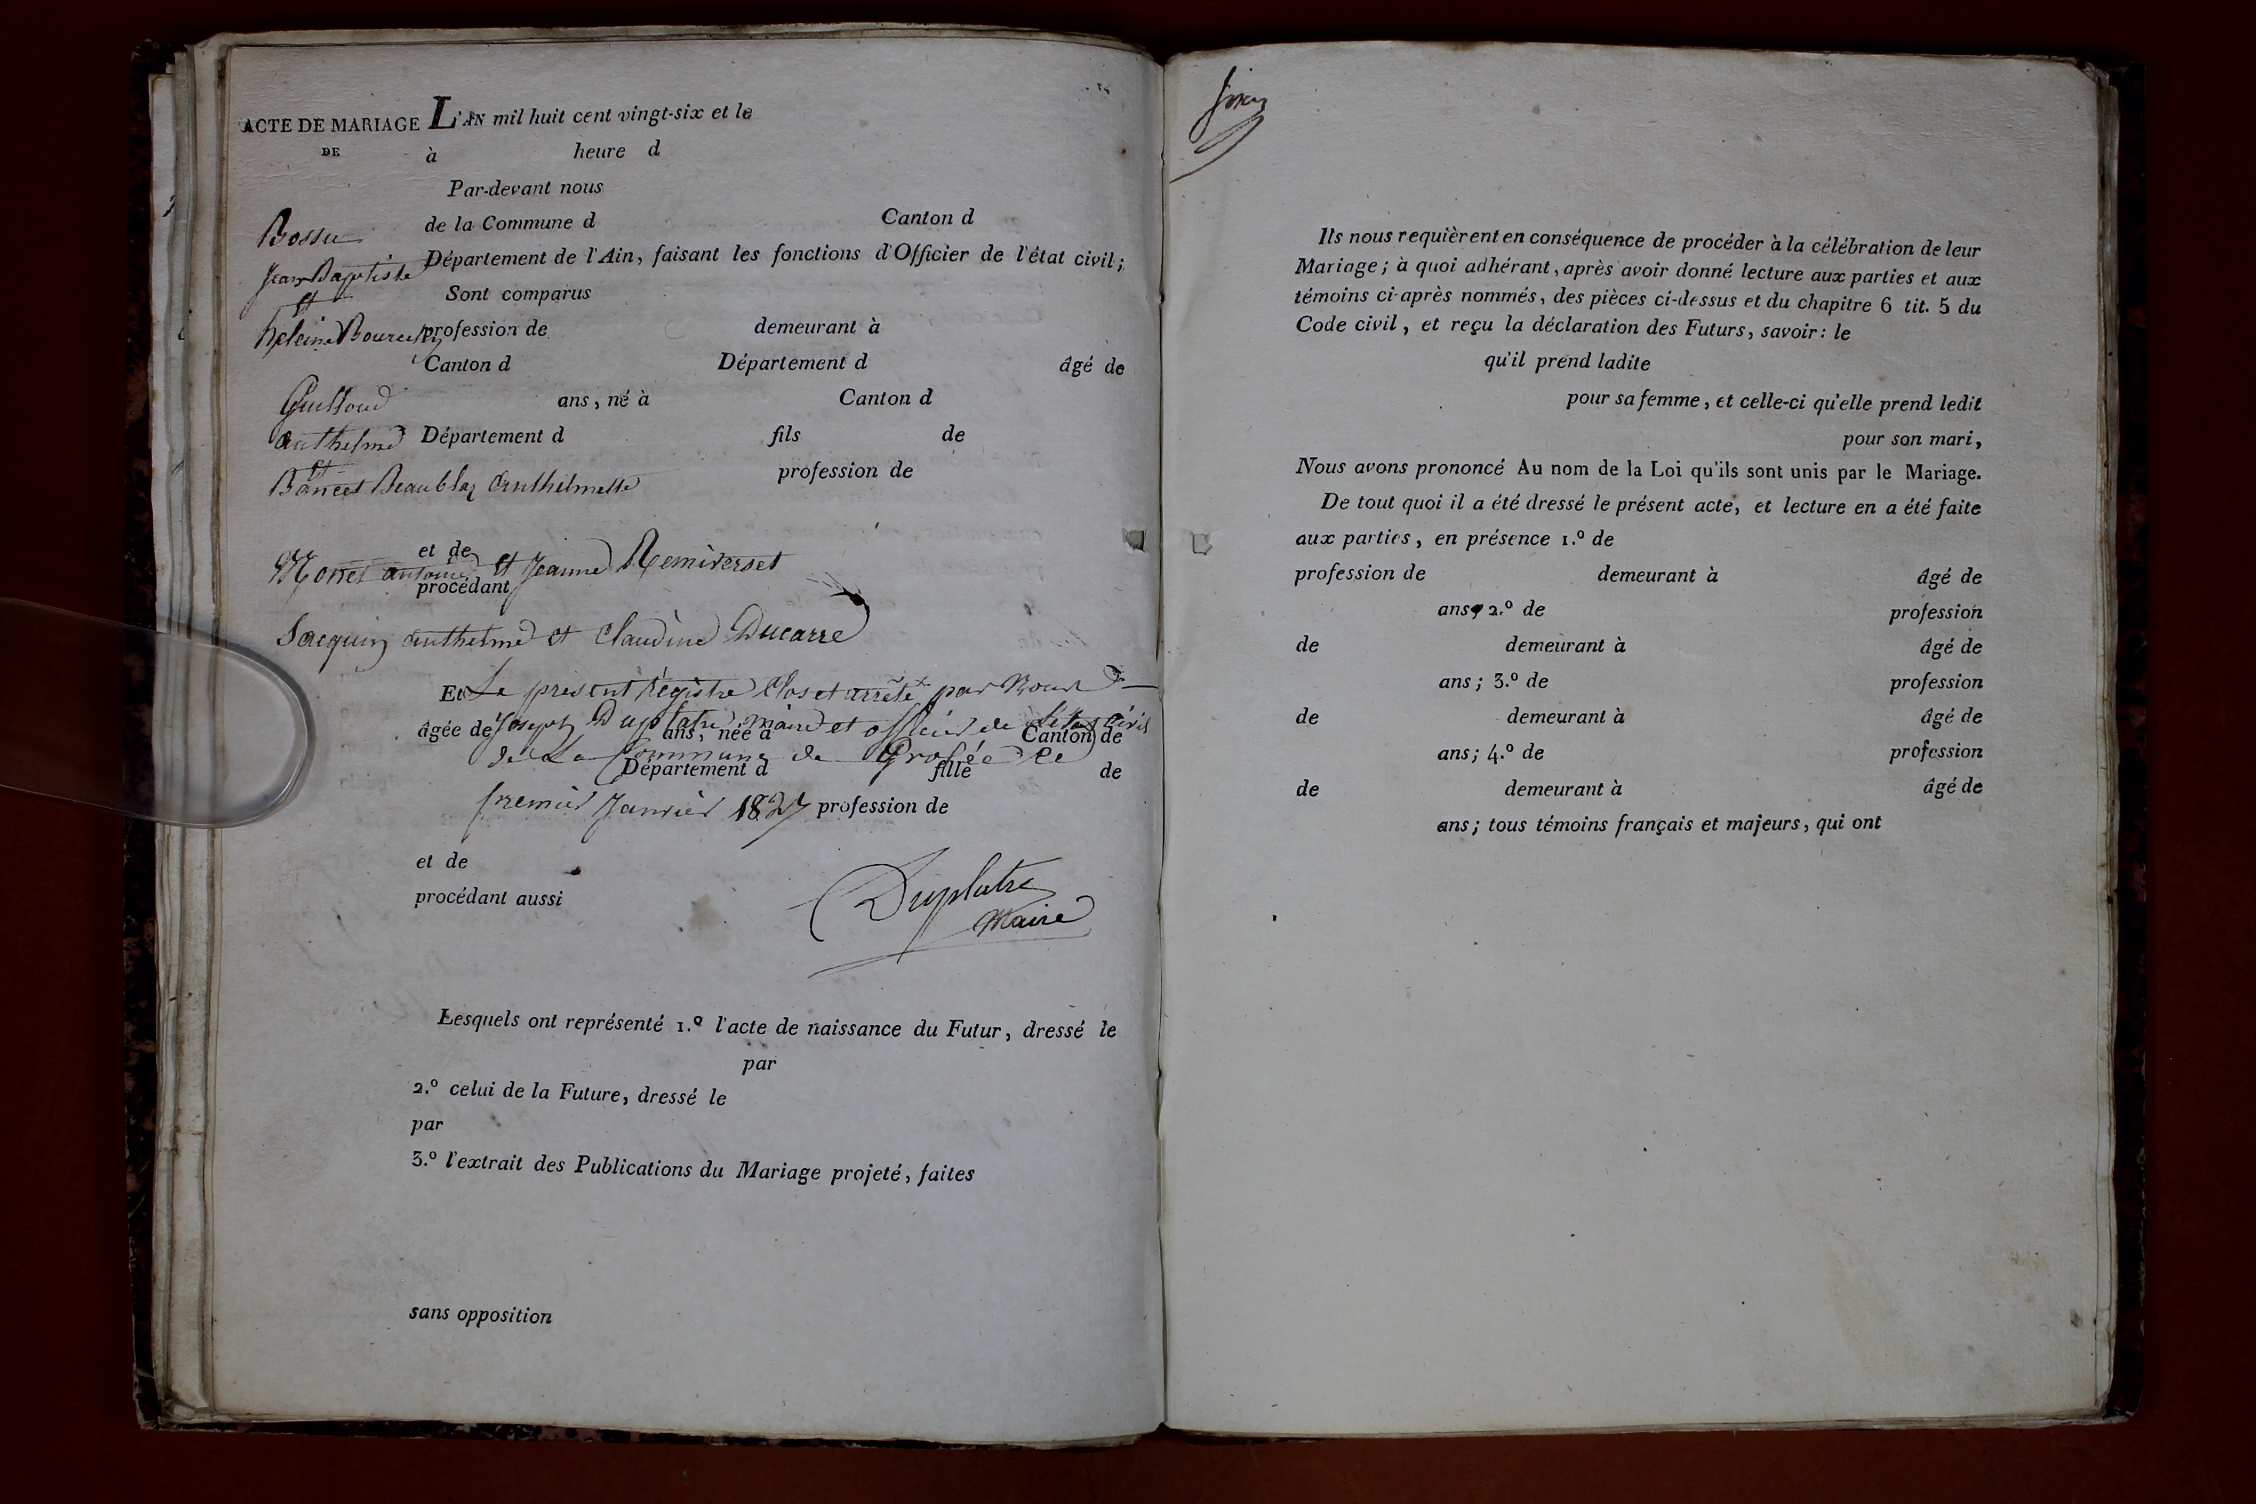 ACTE DE MARIAGE L'AN mil huit cent vingt-six et le
DE à heure d
Par-devant nous
de la Commune d Canton d
Bossu
Département de l'Ain, faisant les fonctions d'Officier de l'état civil;
Jean Baptiste
et
Sont comparus
profession de demeurant à
Canton d Département d âgé de
Guilloud ans, né à Canton d
Anthelme Département d fils de
et
profession de
Beaublez Anthelmette
et de
Monet antoine et Jeanne
procédant
Jacquin anthelme et Claudine Ducarre
Et Le present Registre Clos et arrêté par Nous
Joseph Duplatre maire et officier de L'état Civil
âgée de ans, née à Canton de
de La Commune de Groslée Ce
Département d fille de
premier Janvier 1827 profession de
et de
procédant aussi
Duplatre
Maire
Lesquels ont représenté 1.º l'acte de naissance du Futur, dressé le
par
2.º celui de la Future, dressé le
par
3.º l'extrait des Publications du Mariage projeté, faites
sans opposition
Ils nous requièrent en conséquence de procéder à la célébration de leur
Mariage; à quoi adhérant, après avoir donné lecture aux parties et aux
témoins ci-après nommés, des pièces ci-dessus et du chapitre 6 tit. 5 du
Code civil, et reçu la déclaration des Futurs, savoir: le
qu'il prend ladite
pour sa femme, et celle-ci qu'elle prend ledit
pour son mari,
Nous avons prononcé Au nom de la Loi qu'ils sont unis par le Mariage.
De tout quoi il a été dressé le présent acte, et lecture en a été faite
aux parties, en présence 1.º de
profession de demeurant à âgé de
ans, 2.º de profession
de demeurant à âgé de
ans; 3.º de profession
de demeurant à âgé de
ans; 4.º de profession
de demeurant à âgé de
ans; tous témoins français et majeurs, qui ont